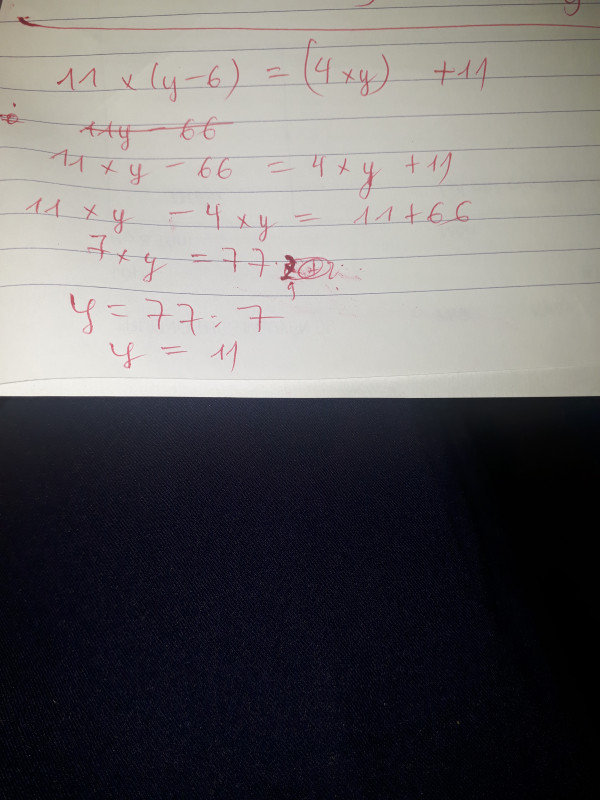 11 × (y-6) = (4×y) +11
11y - 66
11 × y - 66 = 4 × y + 11
11 × y - 4 × y = 11+66
7 × y = 77
y = 77 : 7
y = 11